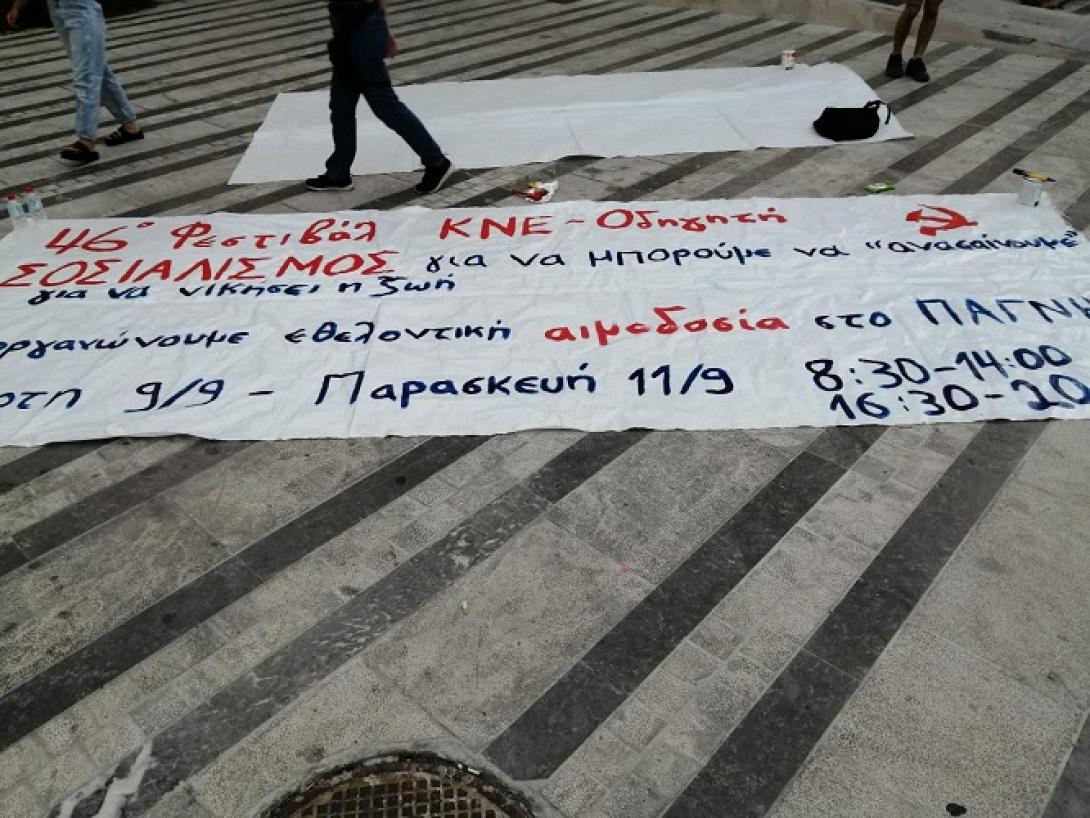 46ο Φεστιβάλ ΚΝΕ-Οδηγητή
ΣΟΣΙΑΛΙΣΜΟΣ για να μπορούμε να "ανασαίνουμε"
για να νικήσει η ζωή
οργανώνουμε εθελοντική αιμοδοσία στο ΠΑΓΝΗ
9/9 - Παρασκευή 11/9 8:30-14:00
16:30-20